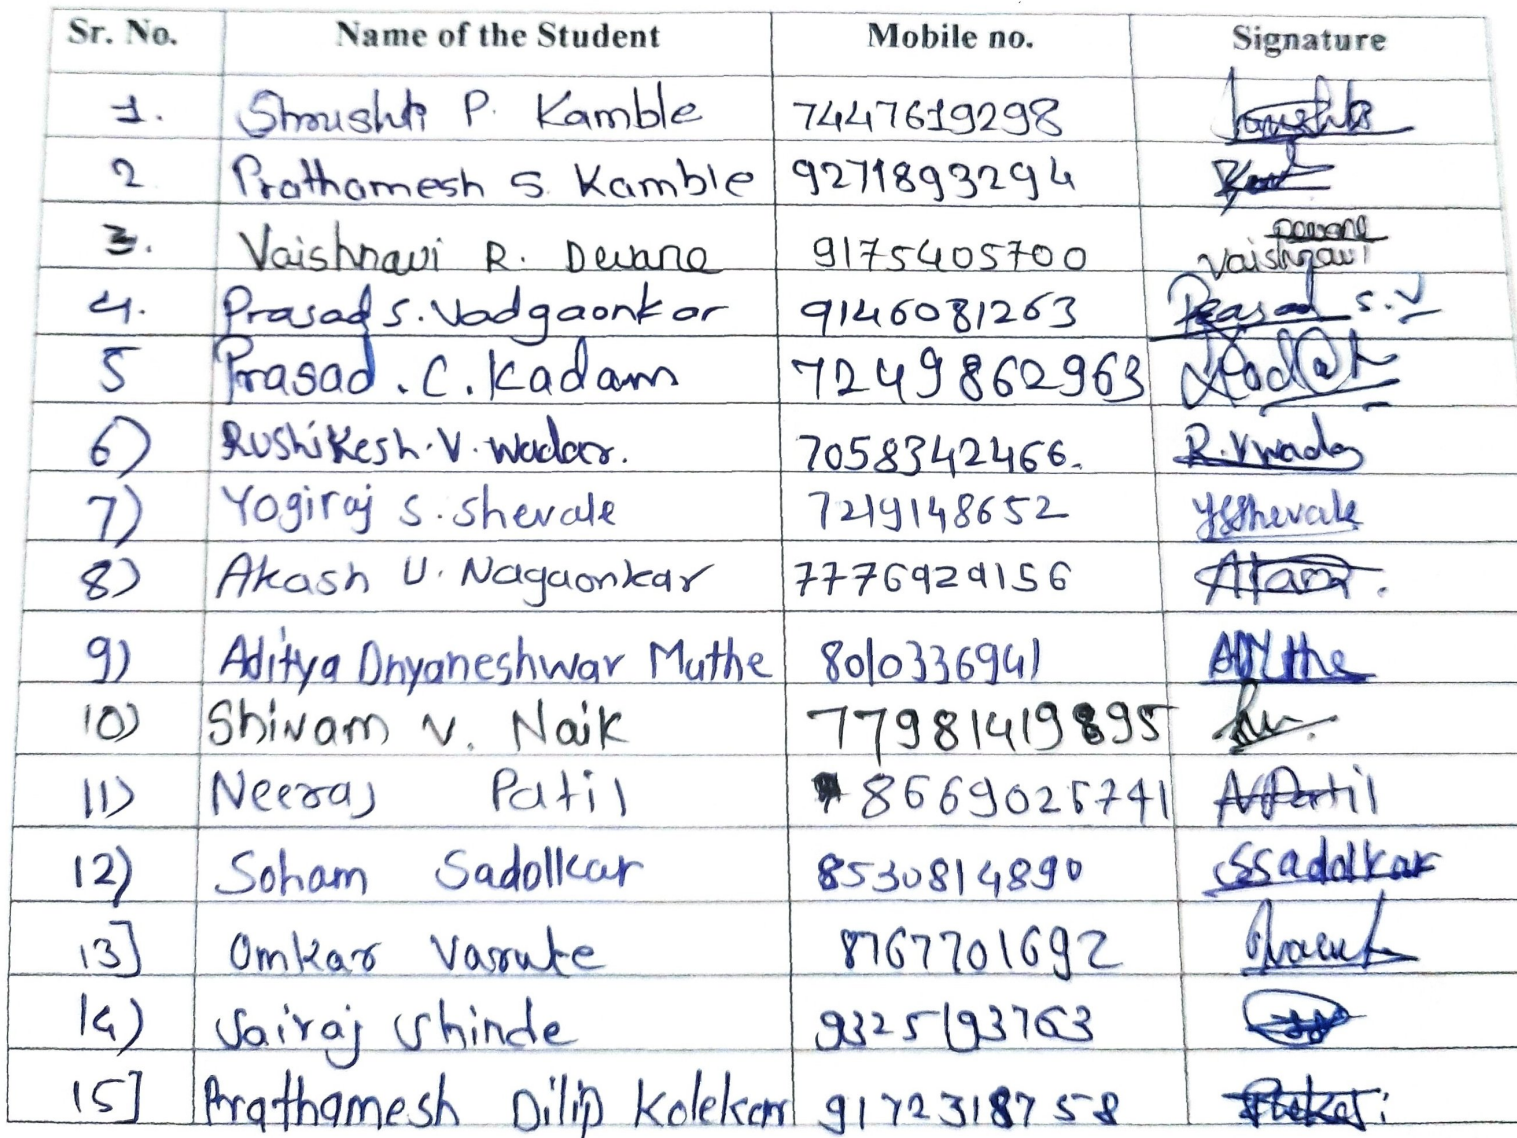 Sr. No. Name of the Student Mobile no. Signature
1. Shrushti P. Kamble 7447619298
2 Prathamesh S. Kamble 9271893294
3. Vaishnavi R. Devane 9175405700 Vaishnavi
4. Prasad S. Vadgaonkar 9146081263 Prasad S.V
5 Prasad . C. Kadam 7249862963
6) Rushikesh. V. Wadar. 7058342466. R.V Wadar
7) Yogiraj S. Shevale 7219148652 YSShevale
8) Akash U. Nagaonkar 7776929156
9) Aditya Dnyaneshwar Muthe 8010336941
10) Shivam V. Naik 77981419895
11) Neeraj Patil 8669026741 NPatil
12) Soham Sadolkar 8530814890 SSadolkar
13] Omkar Varute 8767701692
14) Sairaj Shinde 9325193763
15] Prathamesh Dilip Kolekar 9172318758